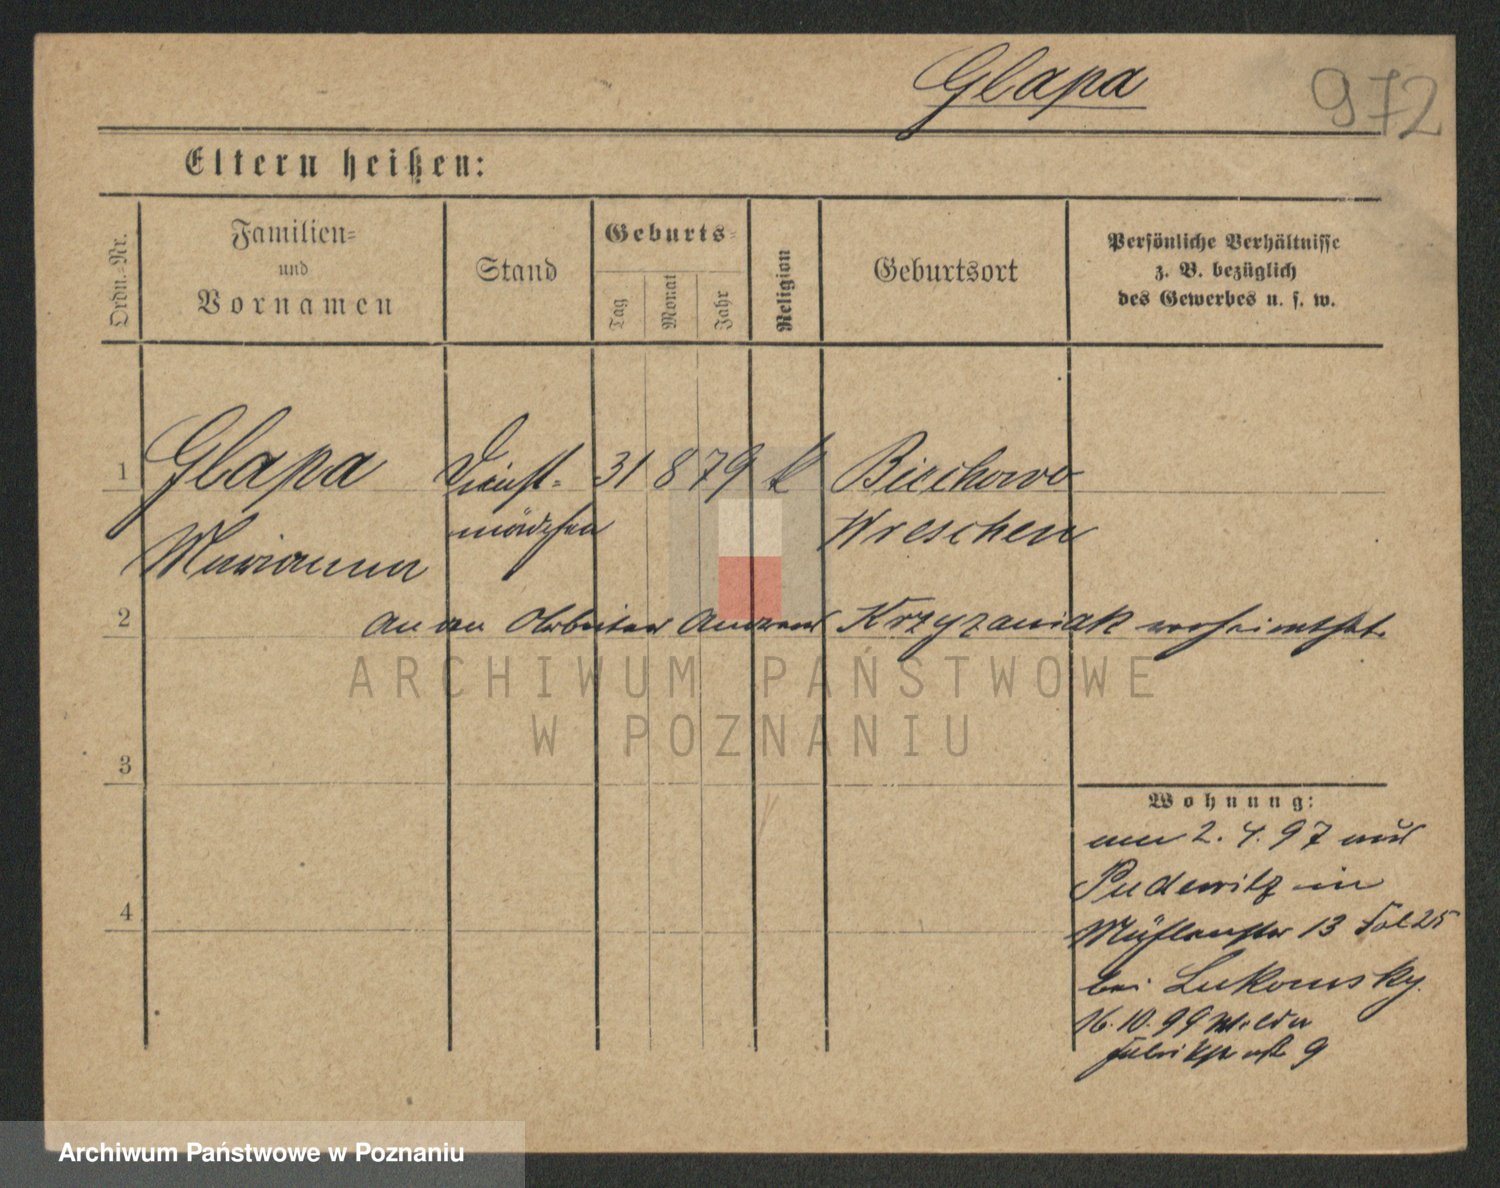 Glapa
972
Eltern heißen:
Ordn.-Nr.
Familien=
und
Vornamen
Stand
Geburts=
Tag
Monat
Jahr
Religion
Geburtsort
Persönliche Verhältnisse
z. B. bezüglich
des Gewerbes u. s. w.
1 Glapa Dienst- 31 8 79 k Biechowo
Marianna mädchen Wreschen
2 an den Arbeiter Andreas Krzyzaniak verheirathet.
ARCHIWUM PAŃSTWOWE
W POZNANIU
3
4
Wohnung:
am 2. 4. 97 aus
Pudewitz in
Mühlenstr 13 Fol 25
bei Lukomsky.
16. 10. 99 Wilda
Fabrikstr 9
Archiwum Państwowe w Poznaniu